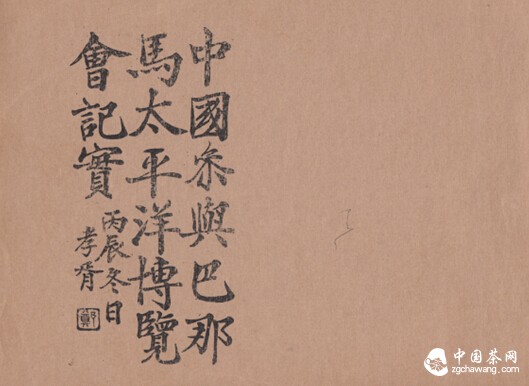 中國參與巴那
馬太平洋博覽
會記實
丙辰冬日
孝胥
鄭
中国茶网
zgchawang.com